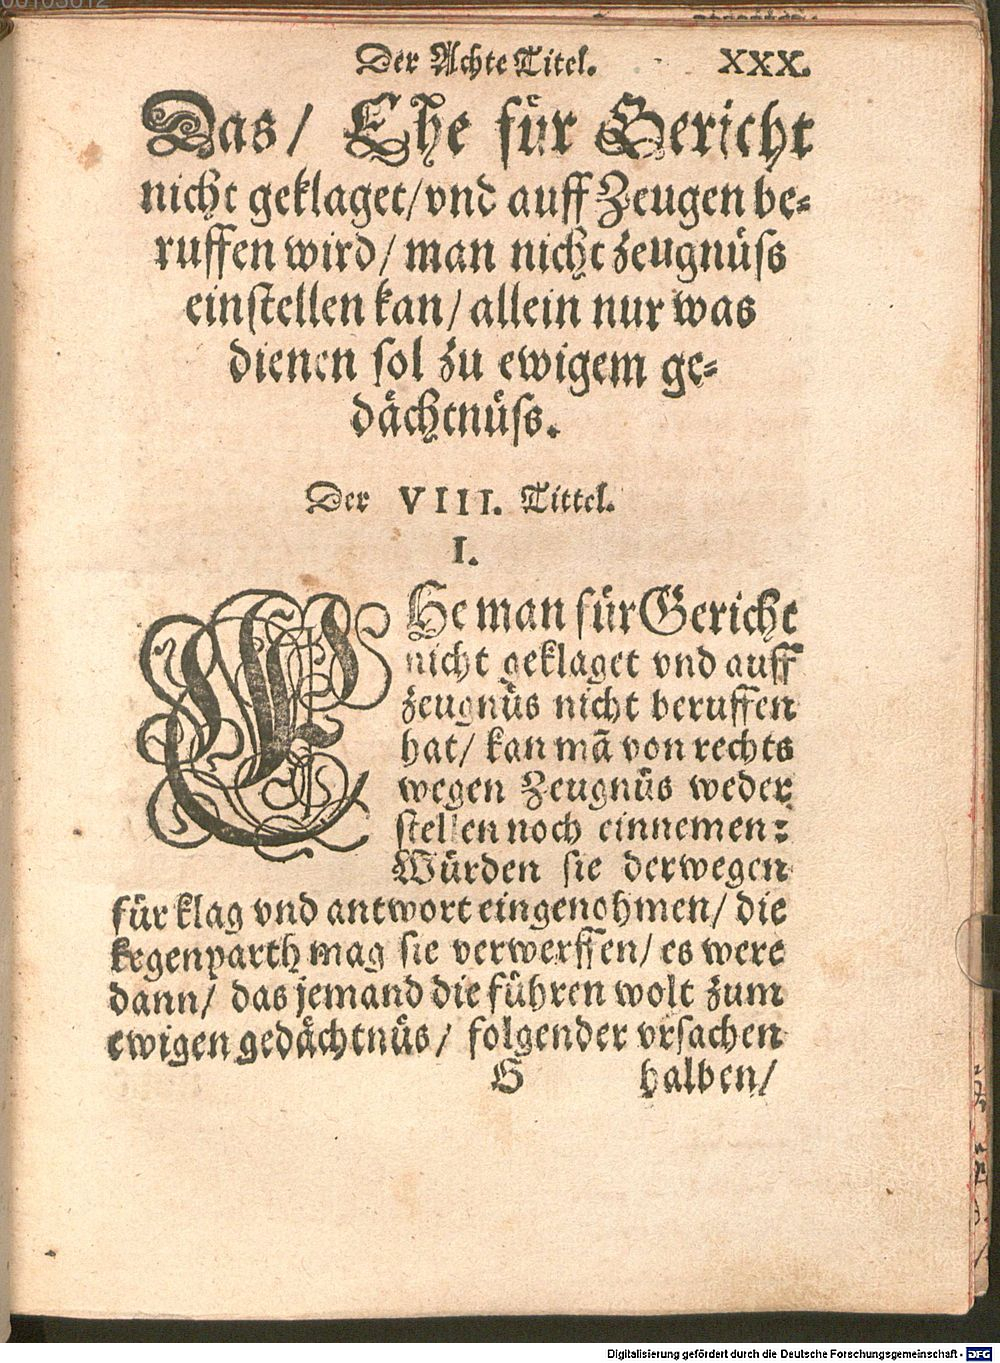 Der Achte Titel. XXX.
Das/ Ehe für Gericht
nicht geklaget/vnd auff Zeugen be-
ruffen wird/ man nicht zeugnüss
einstellen kan/ allein nur was
dienen sol zu ewigem ge-
dächtnüss.
Der VIII. Tittel.
I.
EHe man für Gericht
nicht geklaget vnd auff
zeugnüs nicht beruffen
hat/ kan mã von rechts
wegen Zeugnüs weder
stellen noch einnemen:
Würden sie derwegen
für klag vnd antwort eingenohmen/ die
kegenparth mag sie verwerffen/ es were
dann/ das jemand die führen wolt zum
ewigen gedächtnüs/ folgender vrsachen
G halben/
Digitalisierung gefördert durch die Deutsche Forschungsgemeinschaft - DFG